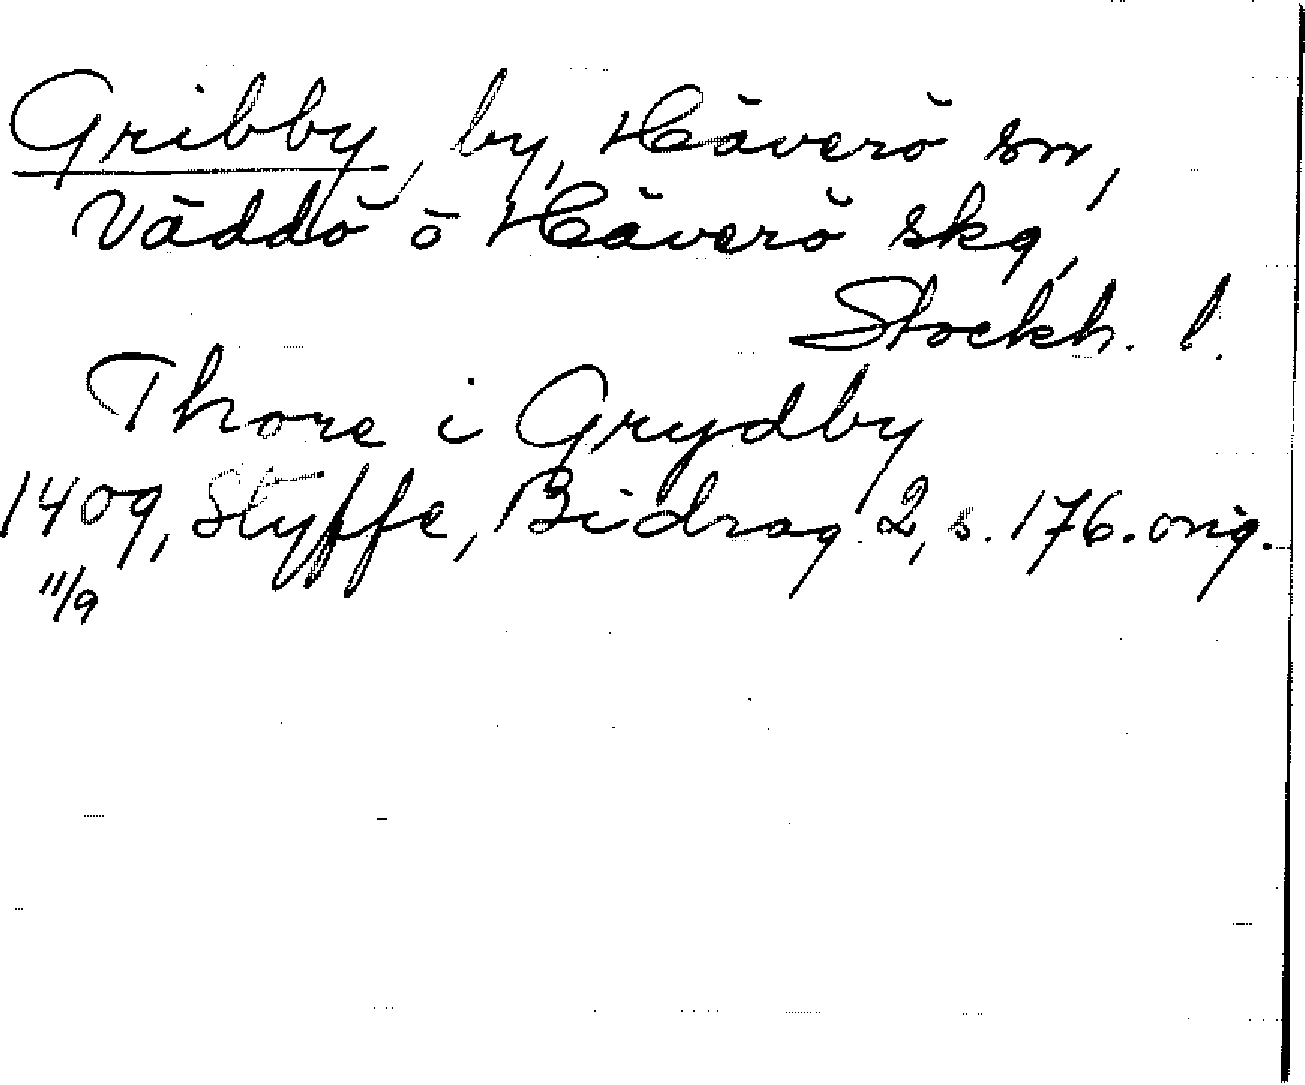 Gribby, by, Häverö sn,
Väddö o Häverö skg,
Stockh. l.
Thore i Grydby
1409, Styffe, Bidrag 2, s. 176. orig.
11/9